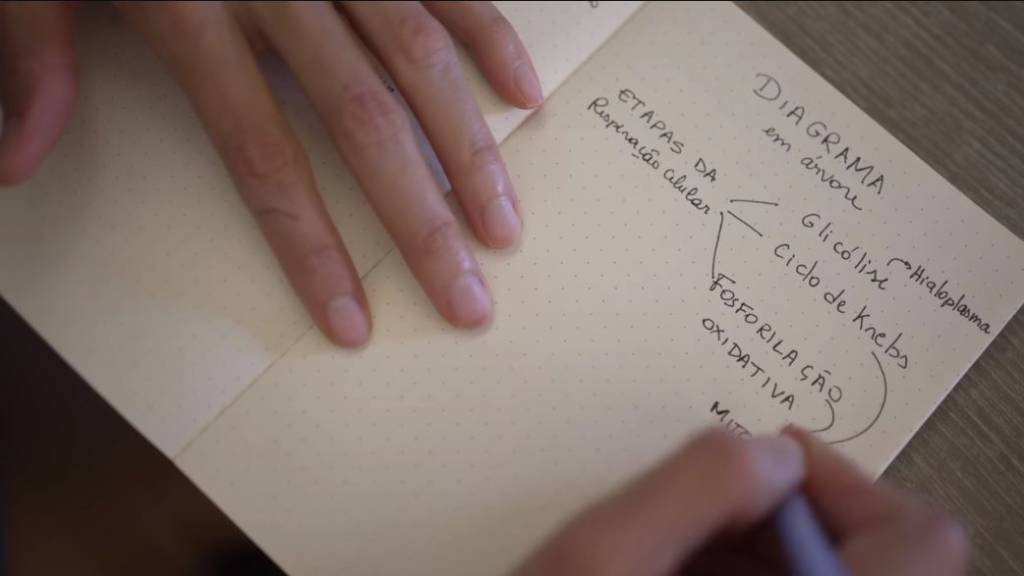 DIAGRAMA
em árvore
ETAPAS DA
Respiração Celular
Glicólise
Hialoplasma
Ciclo de Krebs
FOSFORILAÇÃO
OXIDATIVA
MITO